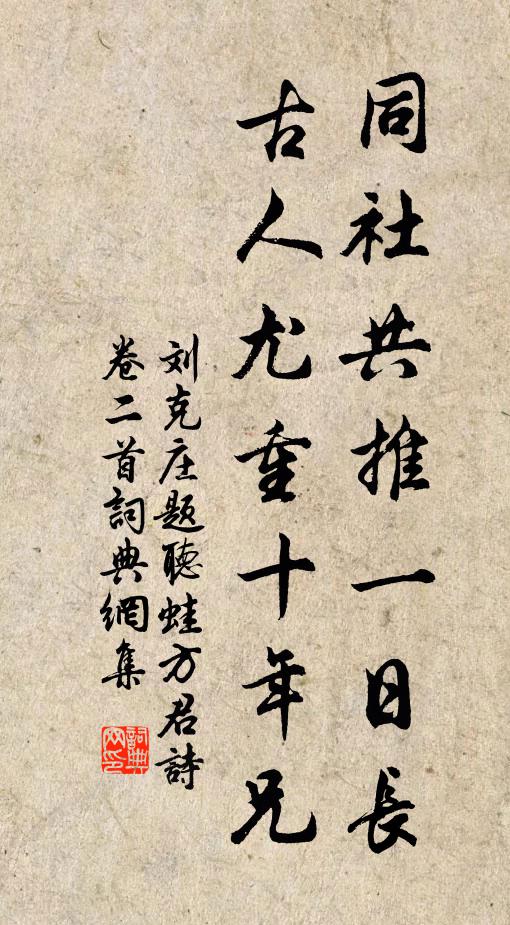 同社共推一日長
古人尤重十年兄
刘克庄題聽蛙方君詩
卷二首詞典網集
詞典網印